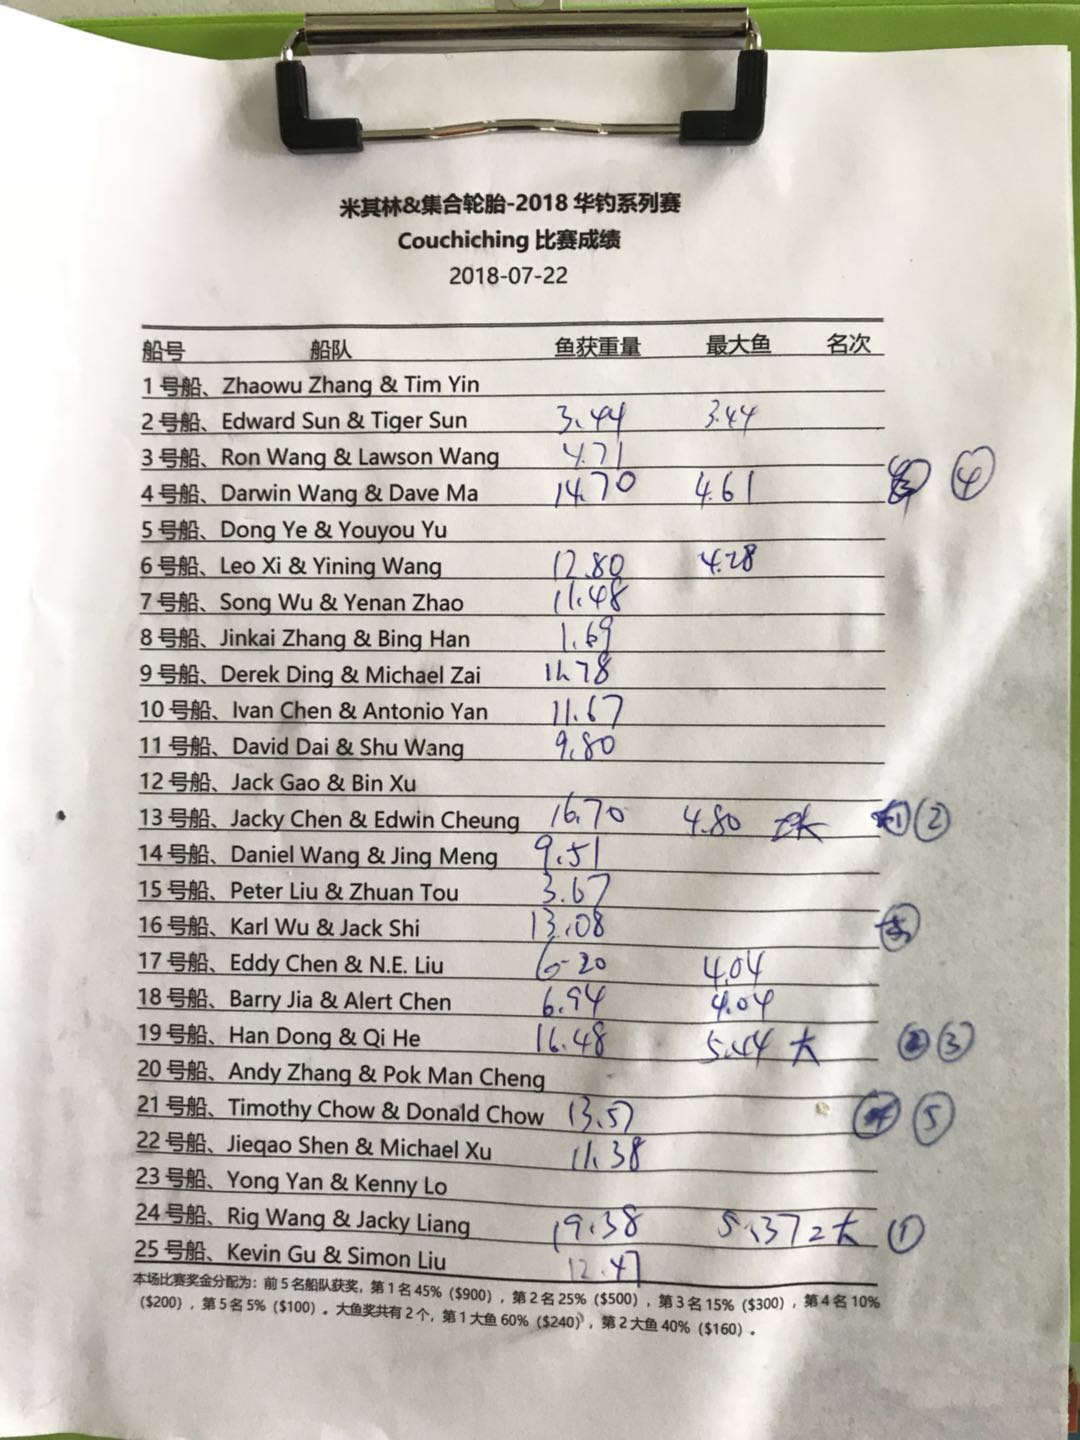 米其林&集合轮胎-2018 华钓系列赛
Couchiching 比赛成绩
2018-07-22
船号 船队 鱼获重量 最大鱼 名次
1 号船、Zhaowu Zhang & Tim Yin
2 号船、Edward Sun & Tiger Sun 3.44 3.44
3 号船、Ron Wang & Lawson Wang 4.71
4 号船、Darwin Wang & Dave Ma 14.70 4.61 ④
5 号船、Dong Ye & Youyou Yu
6 号船、Leo Xi & Yining Wang 12.80 4.28
7 号船、Song Wu & Yenan Zhao 11.48
8 号船、Jinkai Zhang & Bing Han 1.69
9 号船、Derek Ding & Michael Zai 11.78
10 号船、Ivan Chen & Antonio Yan 11.67
11 号船、David Dai & Shu Wang 9.80
12 号船、Jack Gao & Bin Xu
13 号船、Jacky Chen & Edwin Cheung 16.70 4.80 ②
14 号船、Daniel Wang & Jing Meng 9.51
15 号船、Peter Liu & Zhuan Tou 3.67
16 号船、Karl Wu & Jack Shi 13.08
17 号船、Eddy Chen & N.E. Liu 4.04
18 号船、Barry Jia & Alert Chen 6.94 4.04
19 号船、Han Dong & Qi He 16.48 5.44 大 ③
20 号船、Andy Zhang & Pok Man Cheng
21 号船、Timothy Chow & Donald Chow 13.57 ⑤
22 号船、Jieqao Shen & Michael Xu 11.38
23 号船、Yong Yan & Kenny Lo
24 号船、Rig Wang & Jacky Liang 19.38 5.37 2大 ①
25 号船、Kevin Gu & Simon Liu 12.47
本场比赛奖金分配为：前 5 名船队获奖，第 1 名 45%（$900），第 2 名 25%（$500），第 3 名 15%（$300），第 4 名 10%
（$200），第 5 名 5%（$100）。大鱼奖共有 2 个，第 1 大鱼 60%（$240），第 2 大鱼 40%（$160）。